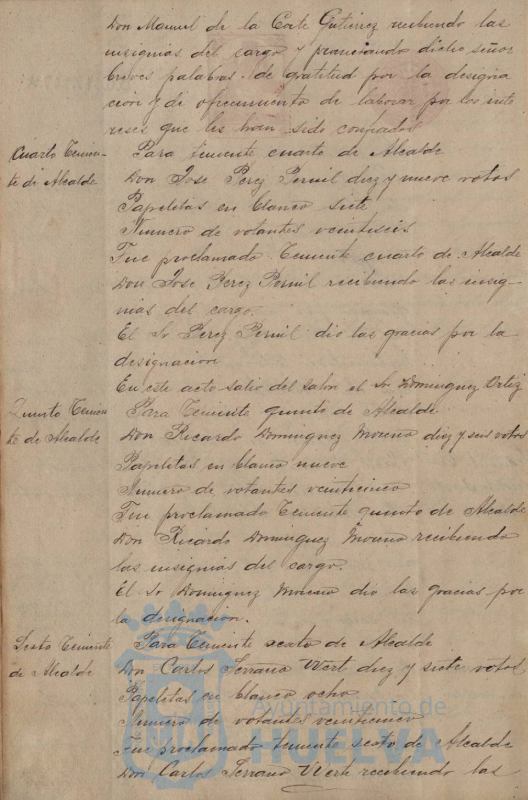 Don Manuel de la Corte Gutierrez recibiendo las
insignias del cargo y pronunciando dicho señor
breves palabras de gratitud por la designa
cion y di ofrecimiento de laborar por los inte
reses que les han sido confiados
Cuarto Tenien-
te di Alcalde
Para teniente cuarto de Alcalde
Don Jose Perez Pernil diez y nueve votos
Papeletas en blanco siete
Numero de votantes veintiseis
Fue proclamado Teniente cuarto de Alcalde
Don Jose Perez Pernil recibiendo las insig-
nias del cargo.
El Sr Perez Pernil dio las gracias por la
designacion
En este acto salio del salon el Sr Dominguez Ortiz
Quinto Tenien
te de Alcalde
Para Teniente quinto de Alcalde
Don Ricardo Dominguez Moreno diez y seis votos
Papeletas en blanco nueve
Numero de votantes veinticinco
Fue proclamado Teniente quinto de Alcalde
Don Ricardo Dominguez Moreno recibiendo
las insignias del cargo.
El Sr Dominguez Moreno dio las gracias por
la designacion.
Sexto Teniente
de Alcalde
Para Teniente sexto de Alcalde
Don Carlos Serrano Wert diez y siete votos
Papeletas en blanco ocho
Numero de votantes veinticinco
Fue proclamado teniente sexto de Alcalde
Don Carlos Serrano Werte recibiendo las
Ayuntamiento de
HUELVA